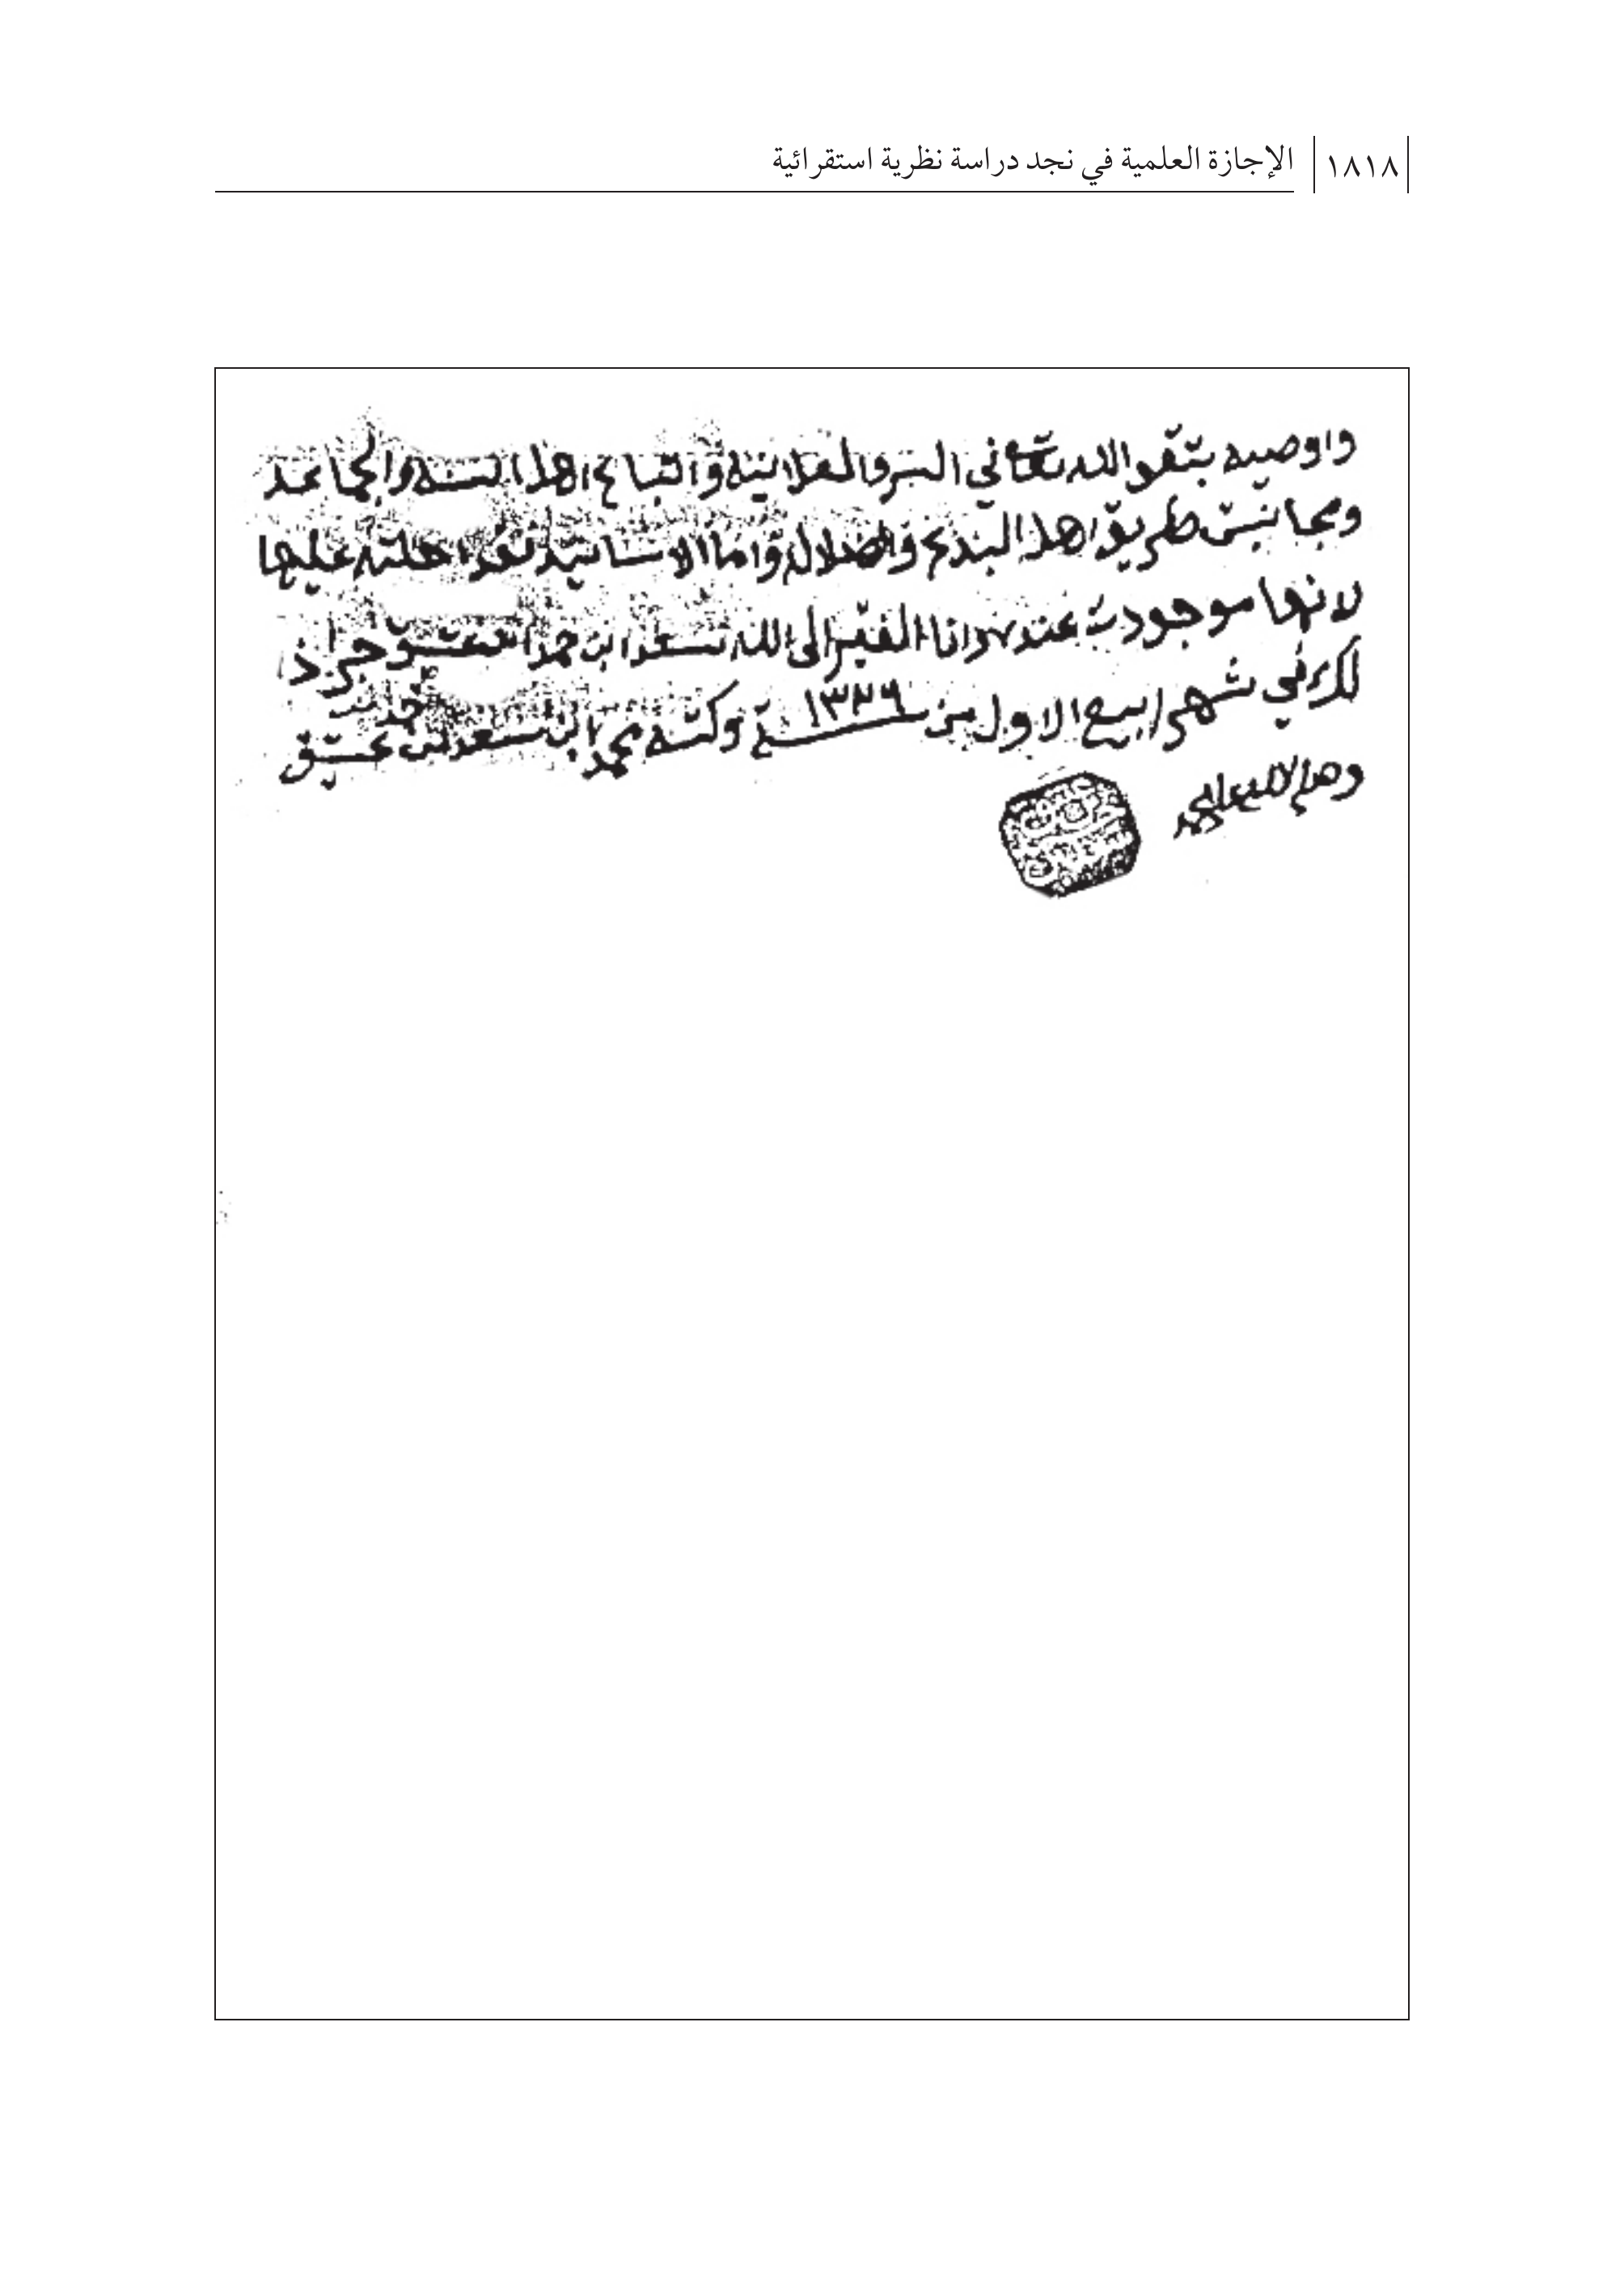 ١٨١٨
الإجازة العلمية في نجد دراسة نظرية استقرائية
واوصيه بتقو الله تعا في السر والعلانية واتباع اهل السنه والجماعه
ومجانبت طريق اهل البدع والضلاله واما الاسانيد فقد احلته عليها
لانها موجودت عنده وانا الفقير الى الله سعد ابن حمد ابن عتيق حرر ذ
لك في شهر ربيع الاول من سنة ١٣٢٦ وكتبه محمد ابن سعد بن حمد بن عتيق
وصلى الله على محمد